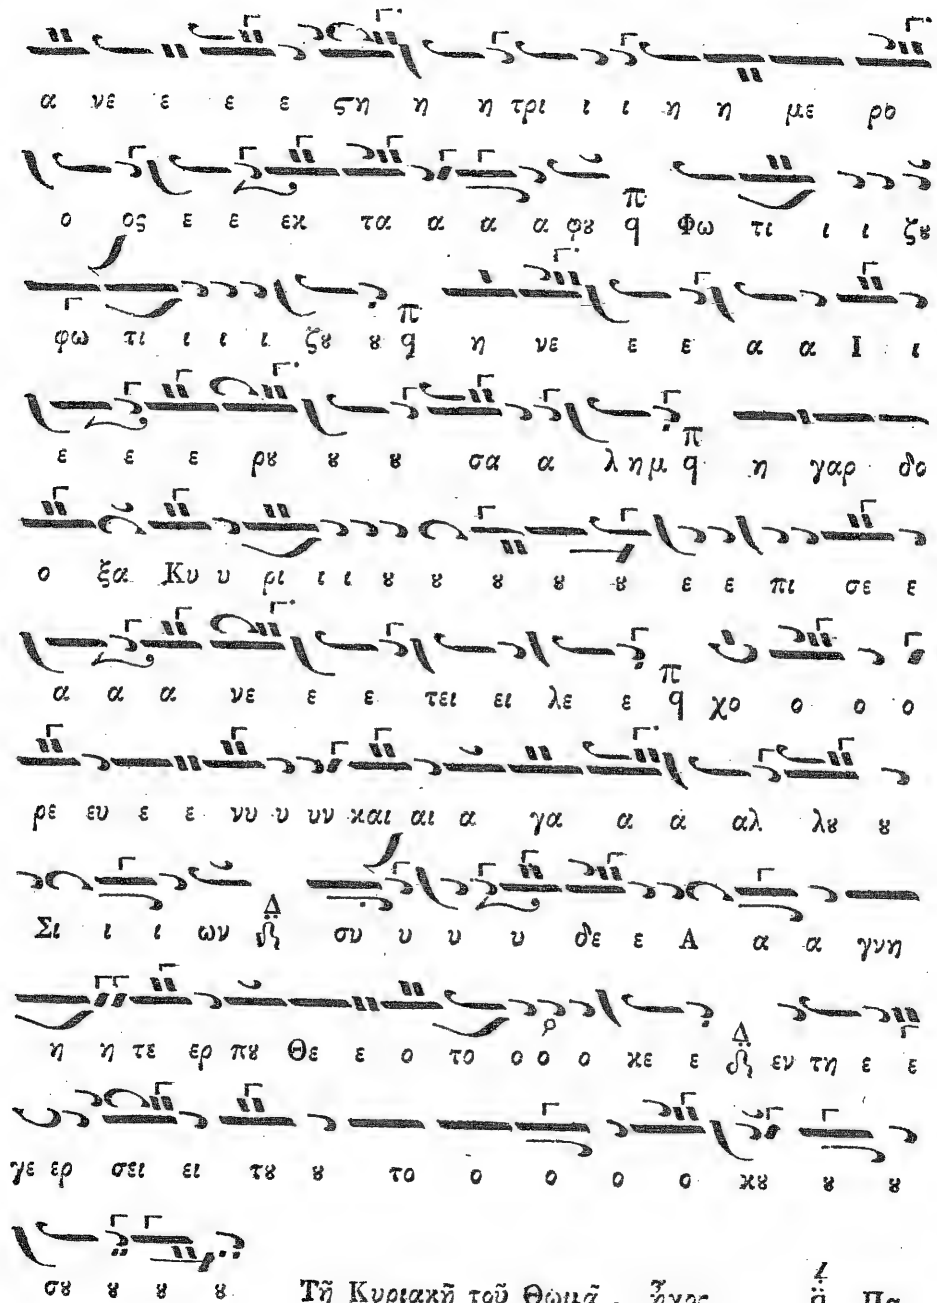 α νε ε ε ε ϛη η η τρι ι ι η η με ρο
ο ος ε ε εκ τα α α α φȣ π q Φω τι ι ι ζȣ
φω τι ι ι ι ζȣ ȣ π q η νε ε ε α α Ι ι
ε ε ε ρȣ ȣ ȣ σα α λημ π q η γαρ δο
ο ξα Κυ υ ρι ι ι ȣ ȣ ȣ ȣ ȣ ε ε πι σε ε
α α α νε ε ε τει ει λε ε π q χο ο ο ο
ρε ευ ε ε νυ υ υν και αι α γα α α αλ λȣ ȣ
Σι ι ι ων Δ συ υ υ υ δε ε Α α α γνη
η η τε ερ πȣ Θε ε ο το ο ο ο κε ε Δ εν τη ε ε
γε ερ σει ει τȣ ȣ το ο ο ο ο κȣ ȣ ȣ
σȣ ȣ ȣ ȣ Τῇ Κυριακῇ τοῦ Θωμᾶ . ἦχος Πα